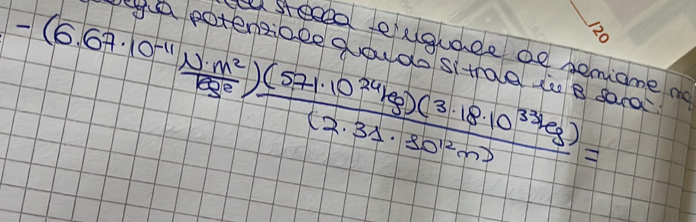 è uguale al semiasse
potenziale quando si trova in B sarà:
120
- (6.67·10⁻¹¹ N·m²/kg²) (571·10²⁴kg)(3.18·10³³kg) / (2.31·30¹²m) =